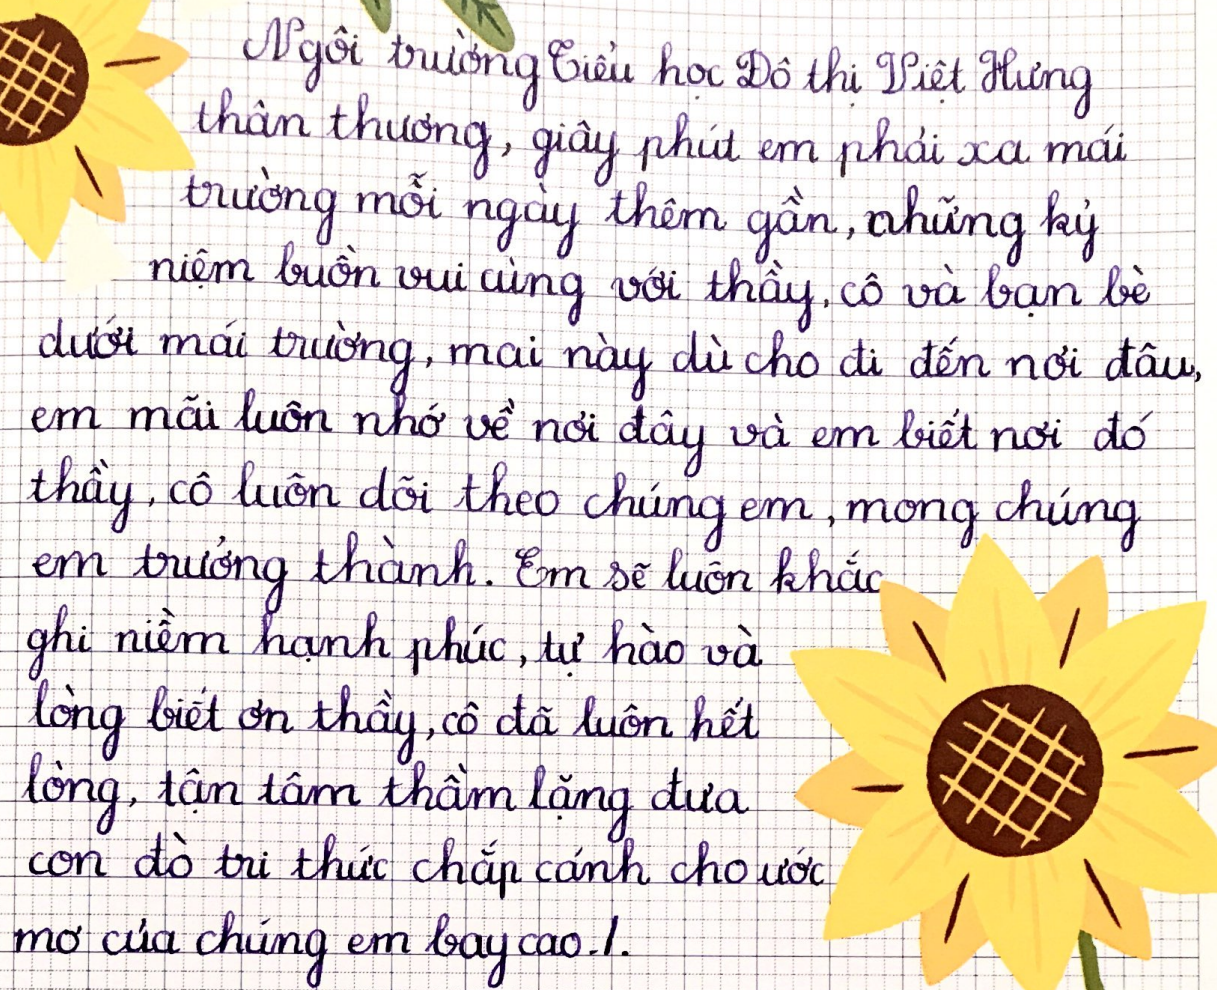 Ngôi trường Tiểu học Đô thị Việt Hưng
thân thương, giây phút em phải xa mái
trường mỗi ngày thêm gần, những kỷ
niệm buồn vui cùng với thầy, cô và bạn bè
dưới mái trường, mai này dù cho đi đến nơi đâu,
em mãi luôn nhớ về nơi đây và em biết nơi đó
thầy, cô luôn dõi theo chúng em, mong chúng
em trưởng thành. Em sẽ luôn khắc
ghi niềm hạnh phúc, tự hào và
lòng biết ơn thầy, cô đã luôn hết
lòng, tận tâm thầm lặng đưa
con đò tri thức chắp cánh cho ước
mơ của chúng em bay cao./.